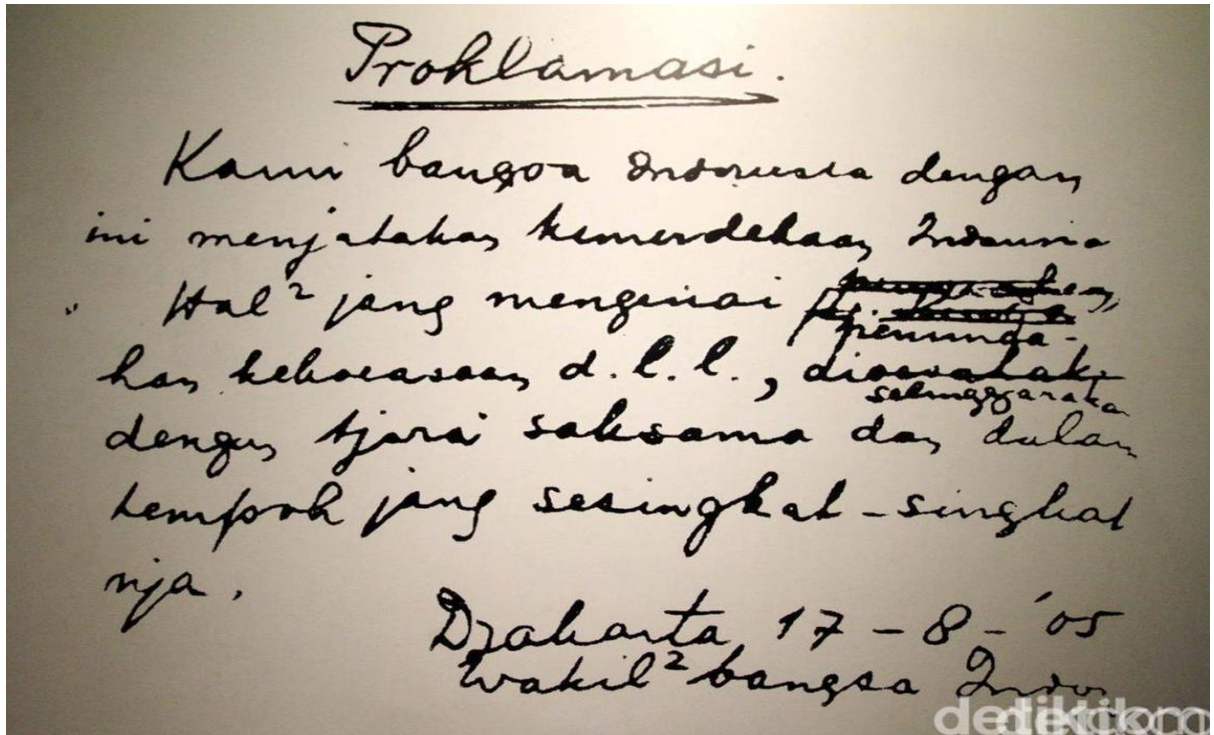 Proklamasi.
Kami bangsa Indonesia dengan
ini menjatakan kemerdekaan Indonesia
Hal² jang mengenai
peminda-
han kekoeasaan d.l.l., dioesahak
selenggarakan
dengan tjara saksama dan dalam
tempoh jang sesingkat-singkat
nja.
Djakarta 17-8-'05
Wakil² bangsa Indon